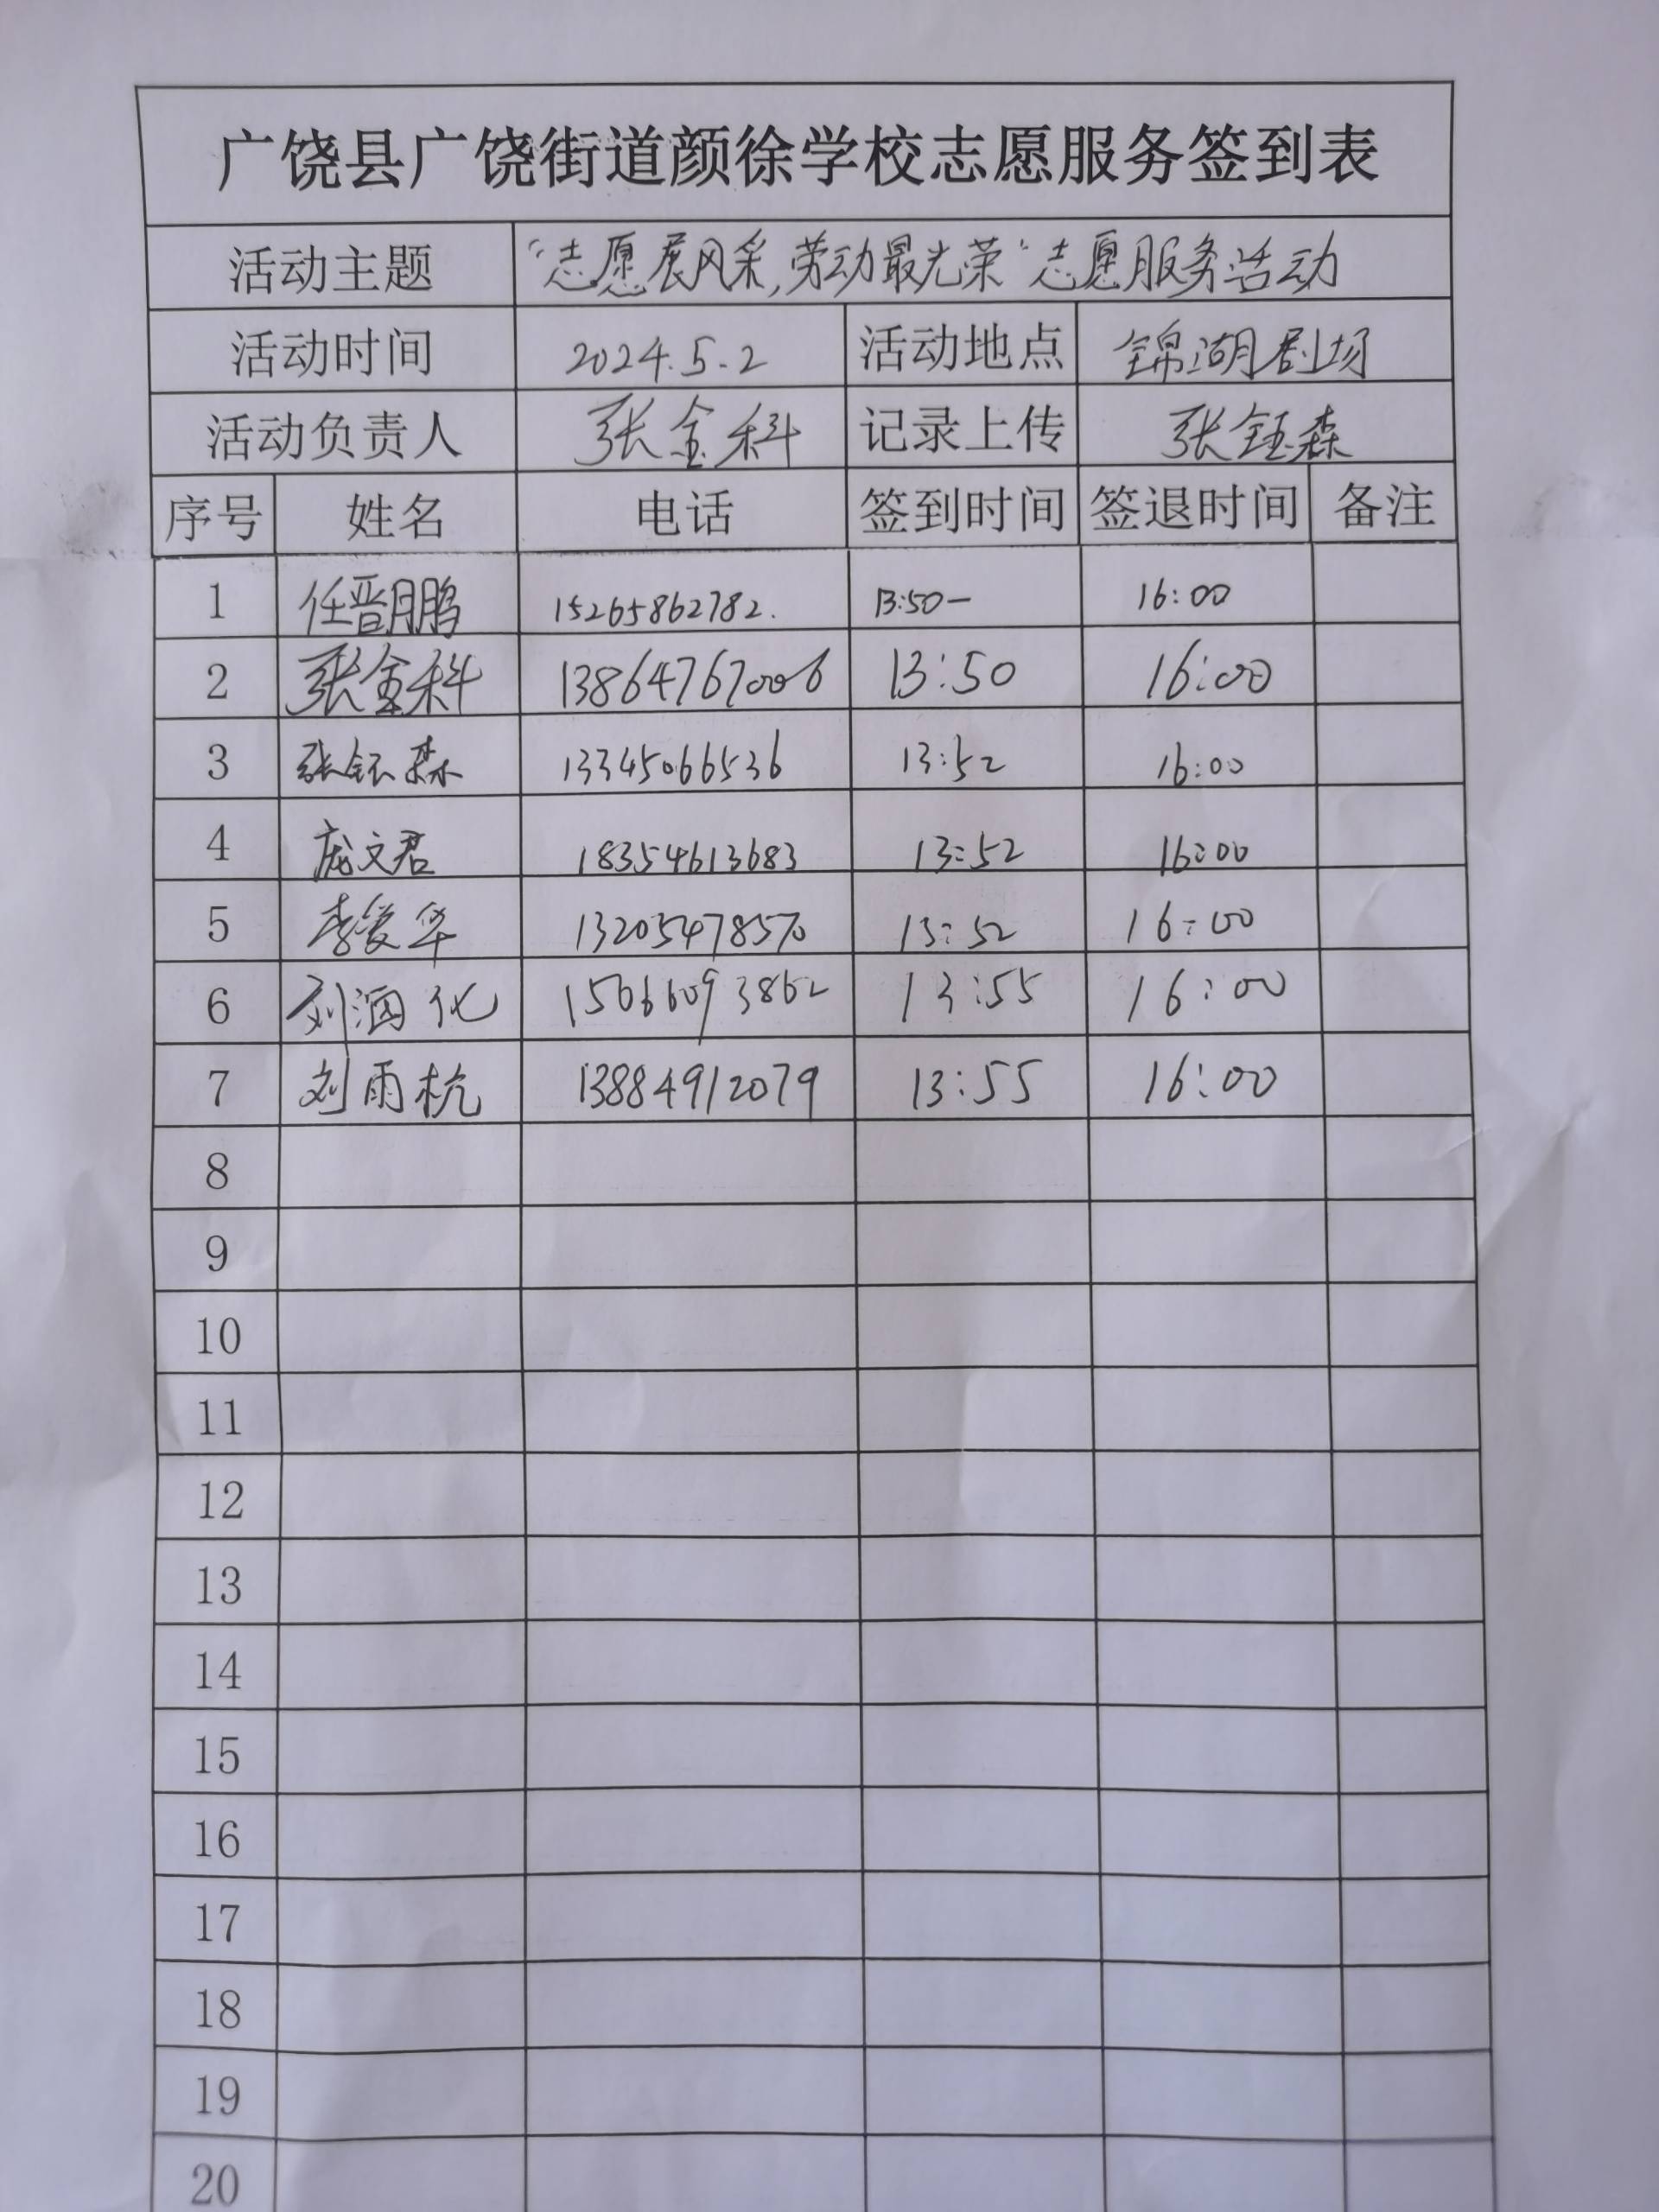 广饶县广饶街道颜徐学校志愿服务签到表
活动主题 “志愿展风采,劳动最光荣”志愿服务活动
活动时间 2024.5.2 活动地点 锦湖剧场
活动负责人 张金科 记录上传 张钰森
序号 姓名 电话 签到时间 签退时间 备注
1 任晋鹏 15265862782. 13:50— 16:00
2 张金科 13864767006 13:50 16:00
3 张钰森 13345066536 13:52 16:00
4 庞文君 18354613683 13:52 16:00
5 李爱华 13205478570 13:52 16:00
6 刘化 15066093862 13:55 16:00
7 刘雨杭 13884912079 13:55 16:00
8
9
10
11
12
13
14
15
16
17
18
19
20